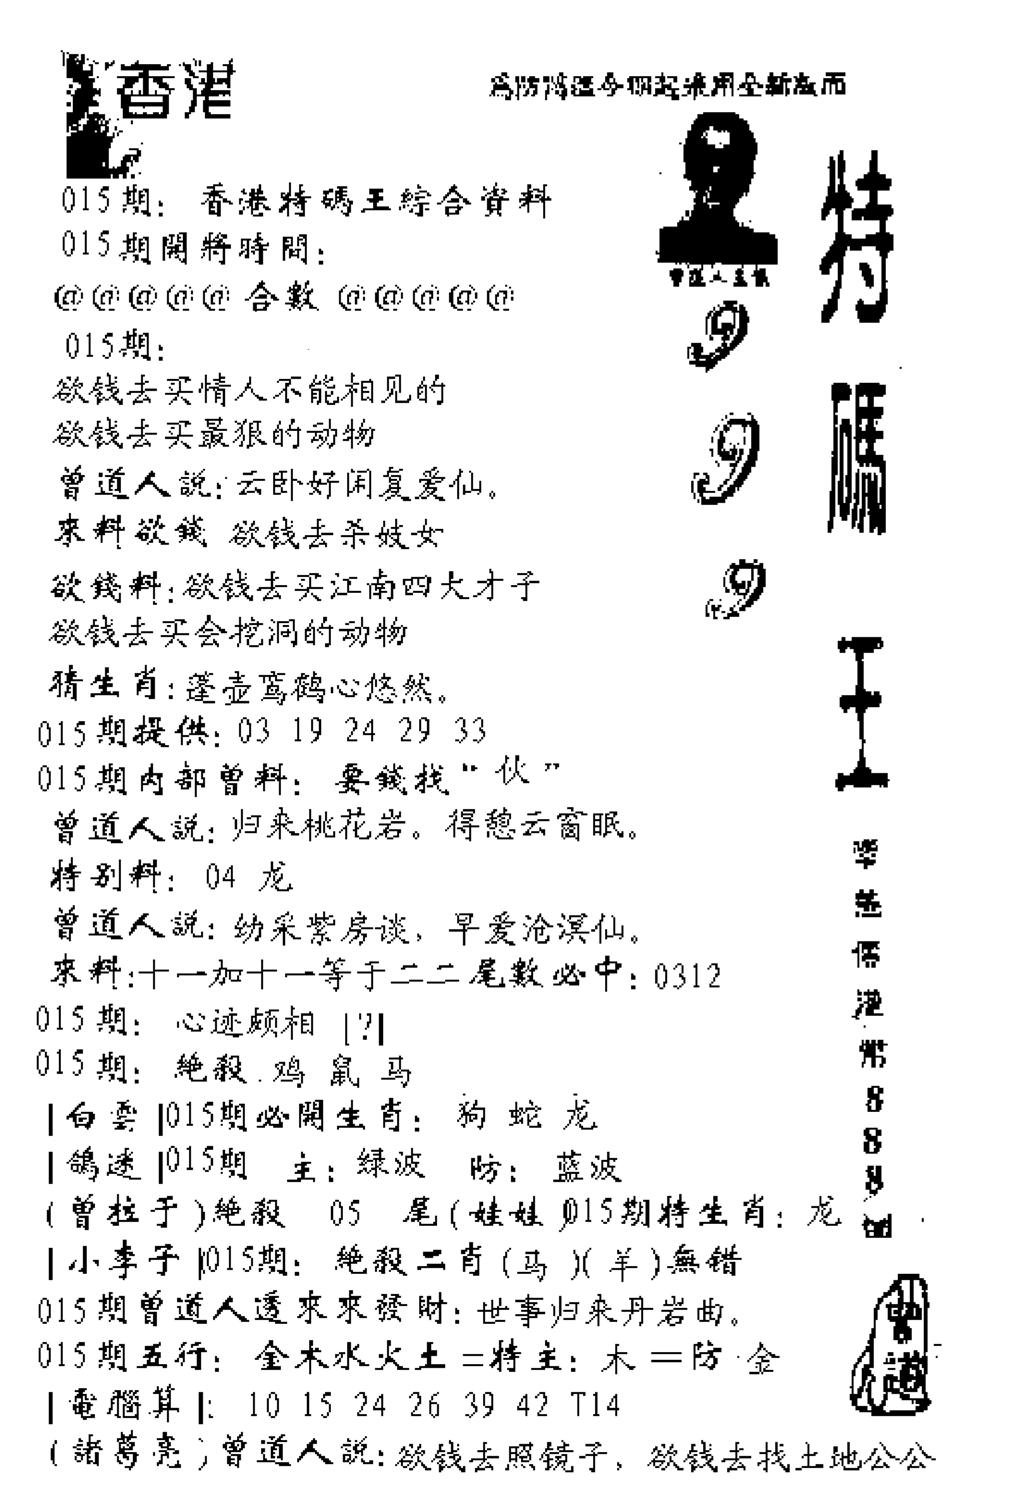 香港
015期：香港特碼王綜合資料
015期開將時間：
@@@@@合數@@@@@
015期：
欲钱去买情人不能相见的
欲钱去买最狠的动物
曾道人説：云卧好闲复爱仙。
來料欲錢 欲钱去杀妓女
欲錢料：欲钱去买江南四大才子
欲钱去买会挖洞的动物
猜生肖：蓬壶鸾鹤心悠然。
015期提供：03 19 24 29 33
015期内部曾料：要錢找“伙”
曾道人説：归来桃花岩。得憩云窗眠。
特别料：04 龙
曾道人説：幼采紫房谈，早爱沧溟仙。
來料：十一加十一等于二二尾數必中：0312
015期：心迹颇相 [?]
015期：絶殺.鸡 鼠 马
|白雲|015期必開生肖：狗 蛇 龙
|鴿迷|015期 主：绿波 防：蓝波
(曾拉于)絶殺 05 尾(娃娃)015期特生肖：龙
|小李子|015期：絶殺二肖(马)(羊)無錯
015期曾道人透來來發財：世事归来丹岩曲。
015期五行：金木水火土=特主：木=防 金
|電腦算|：10 15 24 26 39 42 T14
(諸葛亮)曾道人説：欲钱去照镜子，欲钱去找土地公公
特碼王
999
港幣888
曾道